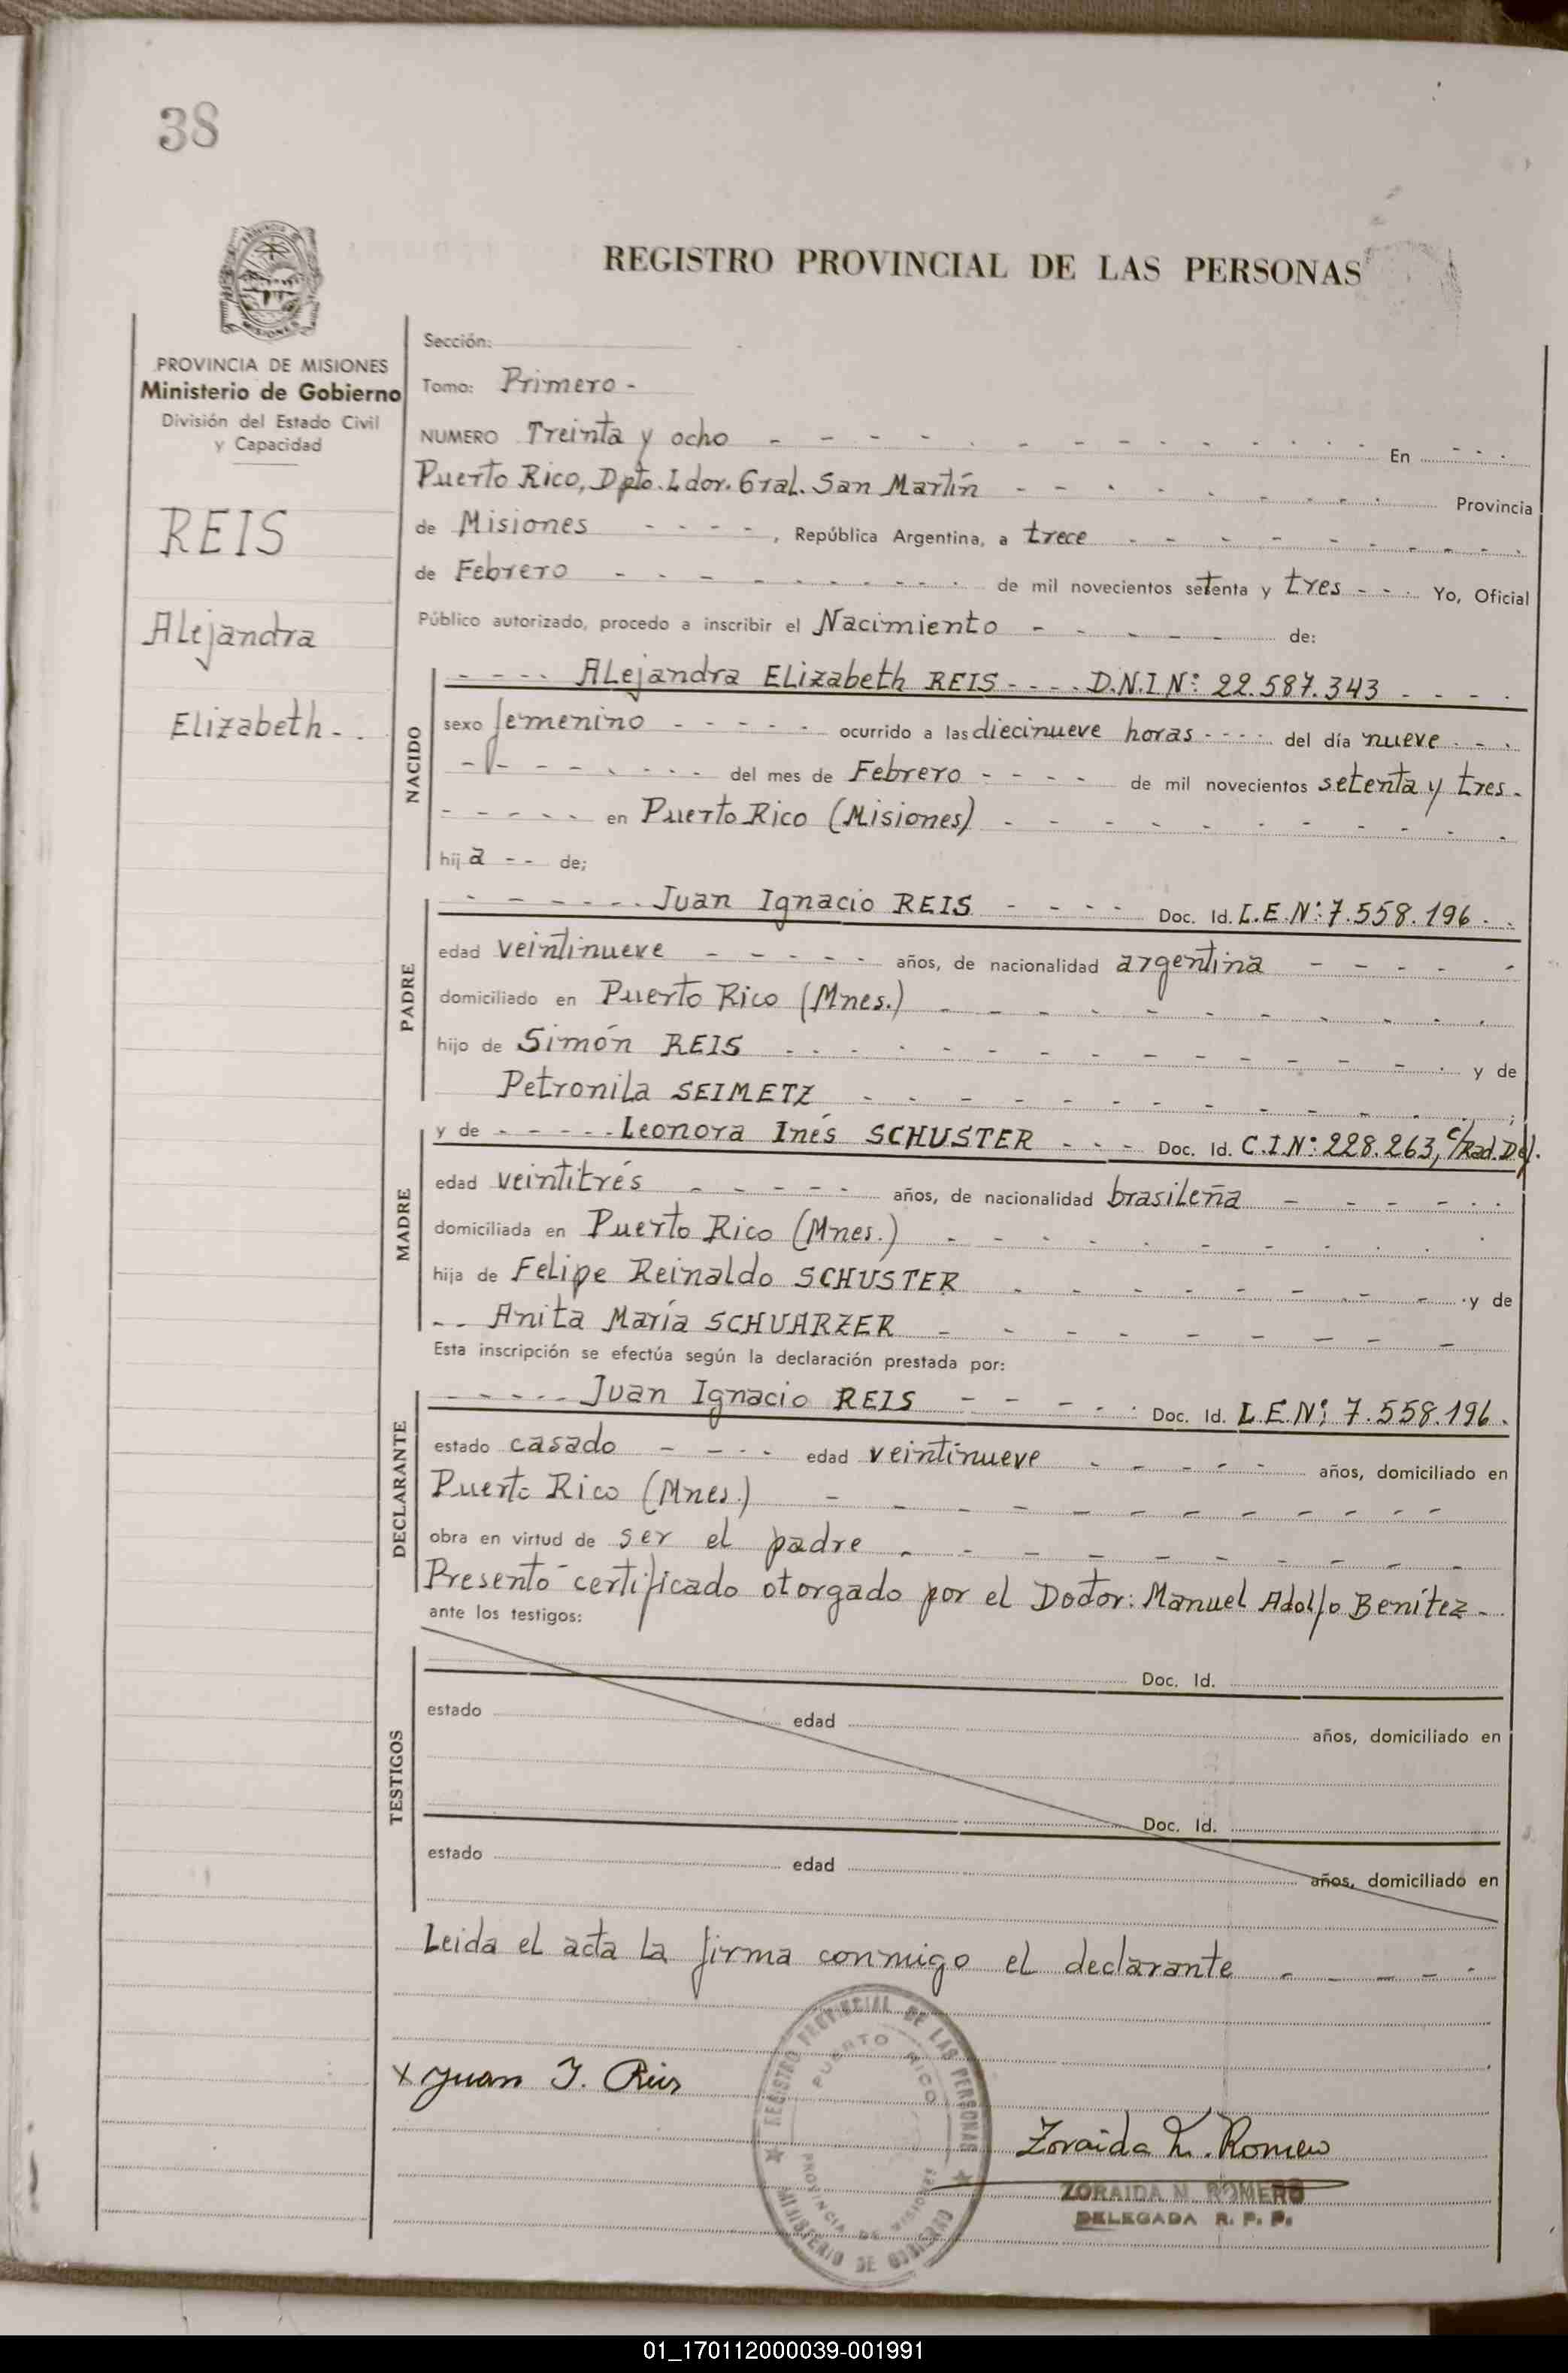 38
REGISTRO PROVINCIAL DE LAS PERSONAS
PROVINCIA DE MISIONES
Ministerio de Gobierno
División del Estado Civil
y Capacidad
REIS
Alejandra
Elizabeth - .
Sección:
Tomo: Primero -
NUMERO Treinta y ocho - - - - - - - - - - - - En - - -
Puerto Rico, Dpto. Ldor. Gral. San Martín - - - - - - - - Provincia
de Misiones - - - - , República Argentina, a trece - - - - - - - - -
de Febrero - - - - - - - - - - de mil novecientos setenta y tres - - - Yo, Oficial
Público autorizado, procedo a inscribir el Nacimiento - - - - - de:
NACIDO
- - - - Alejandra Elizabeth REIS - - - - D.N.I Nº: 22.587.343 - - - -
sexo femenino - - - - - - ocurrido a las diecinueve horas - - - - del día nueve - - -
- - - - - - - - - del mes de Febrero - - - - de mil novecientos setenta y tres -
- - - - - - en Puerto Rico (Misiones) - - - - - - - - -
hij a - - de;
PADRE
- - - - - - - Juan Ignacio REIS - - - - Doc. Id. L.E.Nº: 7.558.196 - -
edad veintinueve - - - - - años, de nacionalidad argentina - - - - -
domiciliado en Puerto Rico (Mnes.) - - - - - - - - - -
hijo de Simón REIS - - - - - - - - - - - - y de
Petronila SEIMETZ - - - - - - - - - - - ;
MADRE
y de - - - - - Leonora Inés SCHUSTER - - - Doc. Id. C.I.Nº: 228.263, c/Rad. Def.
edad veintitrés - - - - - años, de nacionalidad brasileña - - - - - -
domiciliada en Puerto Rico (Mnes.) - - - - - - - - -
hija de Felipe Reinaldo SCHUSTER - - - - - - - - - y de
- - Anita María SCHUARZER - - - - - - - -
Esta inscripción se efectúa según la declaración prestada por:
DECLARANTE
- - - - - - Juan Ignacio REIS - - - - - Doc. Id. L.E.Nº: 7.558.196.
estado casado - - - - edad veintinueve - - - - - años, domiciliado en
Puerto Rico (Mnes.) - - - - - - - - - - -
obra en virtud de ser el padre - - - - - - - - - -
Presentó certificado otorgado por el Doctor: Manuel Adolfo Benítez -
ante los testigos:
TESTIGOS
Doc. Id.
estado edad años, domiciliado en
Doc. Id.
estado edad años, domiciliado en
Leida el acta la firma conmigo el declarante - - - - -
x Juan I. Reis
REGISTRO PROVINCIAL DE LAS PERSONAS
PUERTO RICO
PROVINCIA DE MISIONES
MINISTERIO DE GOBIERNO
Zoraida N. Romero
ZORAIDA N. ROMERO
DELEGADA R. P. P.
01_170112000039-001991